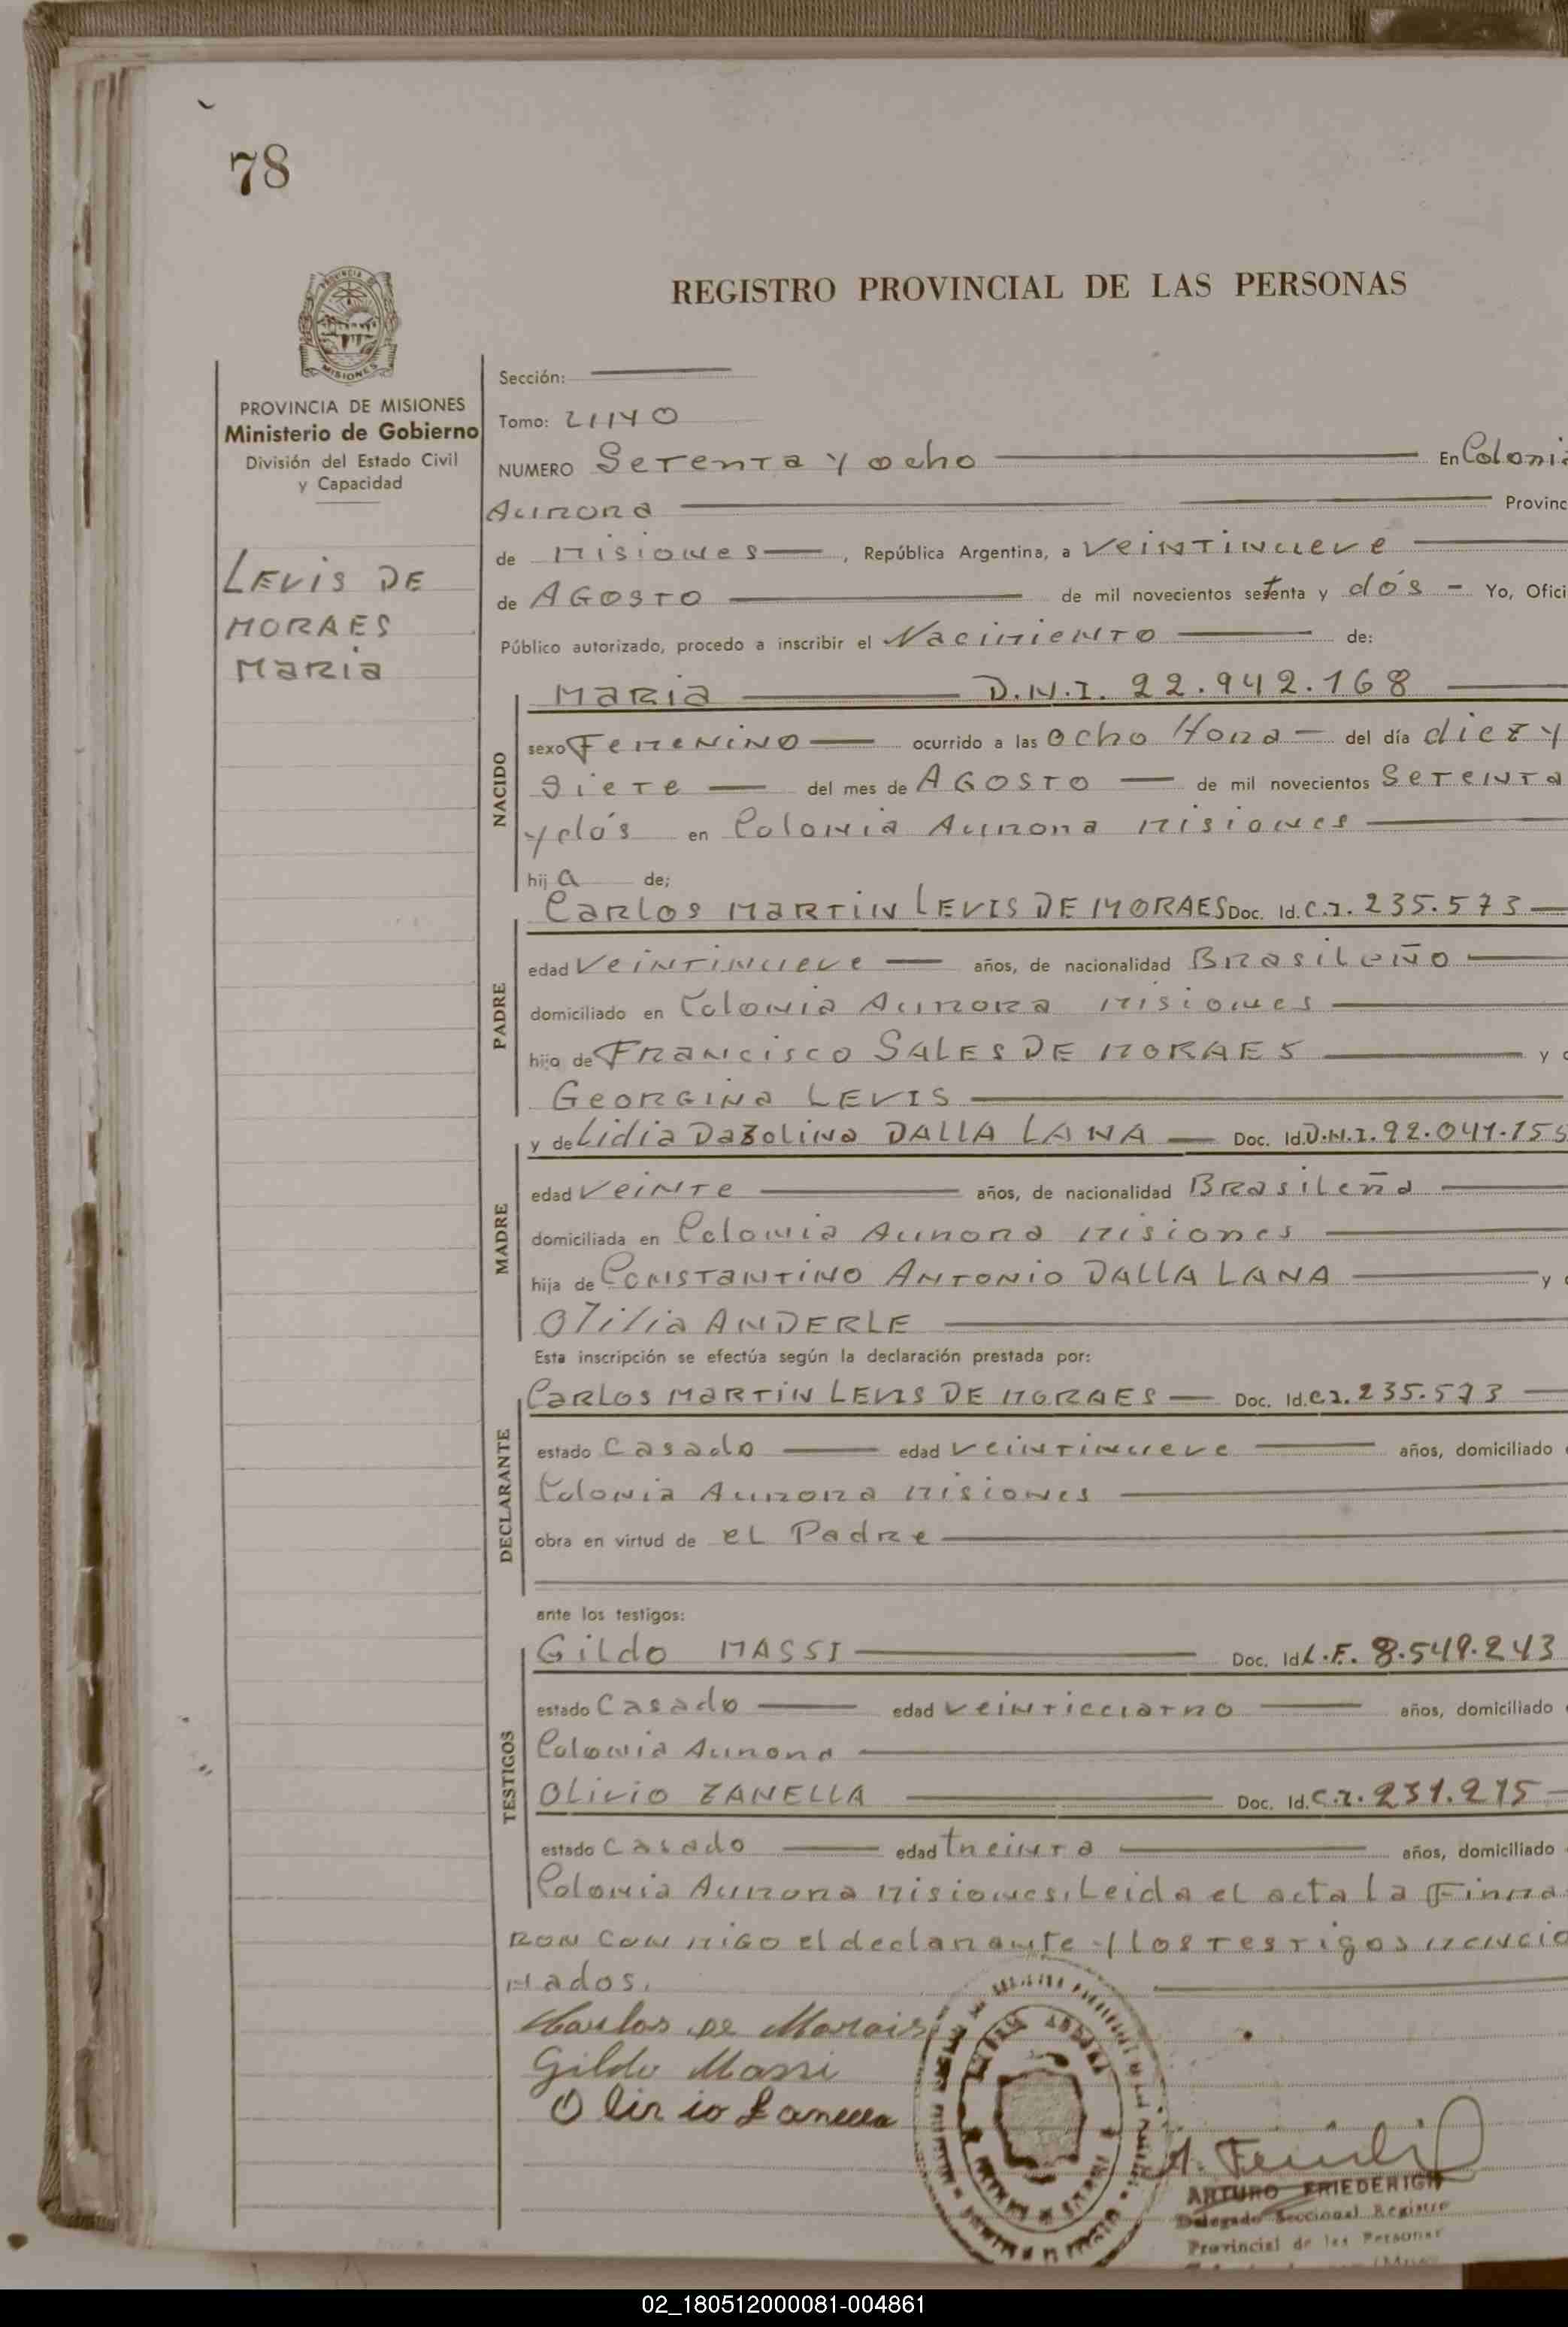 78
REGISTRO PROVINCIAL DE LAS PERSONAS
PROVINCIA DE MISIONES
Ministerio de Gobierno
División del Estado Civil
y Capacidad
LEVIS DE
MORAES
MARIA
Sección:
Tomo: 21140
NUMERO Setenta y ocho En Colonia
Aurora Provinc
de Misiones, República Argentina, a Veintinueve
de AGOSTO de mil novecientos setenta y dós - Yo, Ofici
Público autorizado, procedo a inscribir el Nacimiento de:
NACIDO
MARIA D.N.I. 22.942.168
sexo Femenino ocurrido a las ocho Hora del día diez y
Siete del mes de AGOSTO de mil novecientos Setenta
y dós en Colonia Aurora Misiones
hija de;
PADRE
Carlos MARTIN LEVIS DE MORAES Doc. Id. C.I. 235.573
edad Veintinueve años, de nacionalidad Brasileño
domiciliado en Colonia Aurora Misiones
hijo de Francisco SALES DE MORAES y
Georgina LEVIS
MADRE
y de Lidia Dazolina DALLA LANA Doc. Id. D.N.I. 92.041.155
edad Veinte años, de nacionalidad Brasileña
domiciliada en Colonia Aurora Misiones
hija de Constantino Antonio DALLA LANA y
Otilia ANDERLE
Esta inscripción se efectúa según la declaración prestada por:
DECLARANTE
Carlos Martin LEVIS DE MORAES Doc. Id. C.I. 235.573
estado Casado edad Veintinueve años, domiciliado
Colonia Aurora Misiones
obra en virtud de el Padre
ante los testigos:
TESTIGOS
Gildo MASSI Doc. Id. L.E. 8.549.243
estado Casado edad Veinticuatro años, domiciliado
Colonia Aurora
Olivio ZANELLA Doc. Id. C.I. 231.215
estado Casado edad treinta años, domiciliado
Colonia Aurora Misiones, Leida el acta la Firma
ron conmigo el declarante y los testigos mencio
nados.
Carlos de Morais
Gildo Massi
Olivio Zanella
ARTURO FRIEDERICH
Delegado Seccional Registro
Provincial de las Personas
02_180512000081-004861